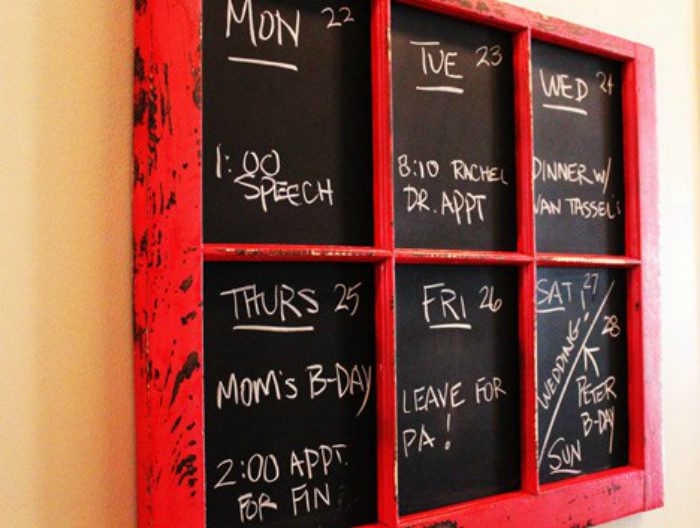 MON 22
1:00
SPEECH
TUE 23
8:10 RACHEL
DR. APPT
WED 24
DINNER W/
VAN TASSEL
THURS 25
MOM'S B-DAY
2:00 APPT.
FOR FIN
FRI 26
LEAVE FOR
PA!
SAT 27
WEDDING!
28
PETER
B-DAY
SUN